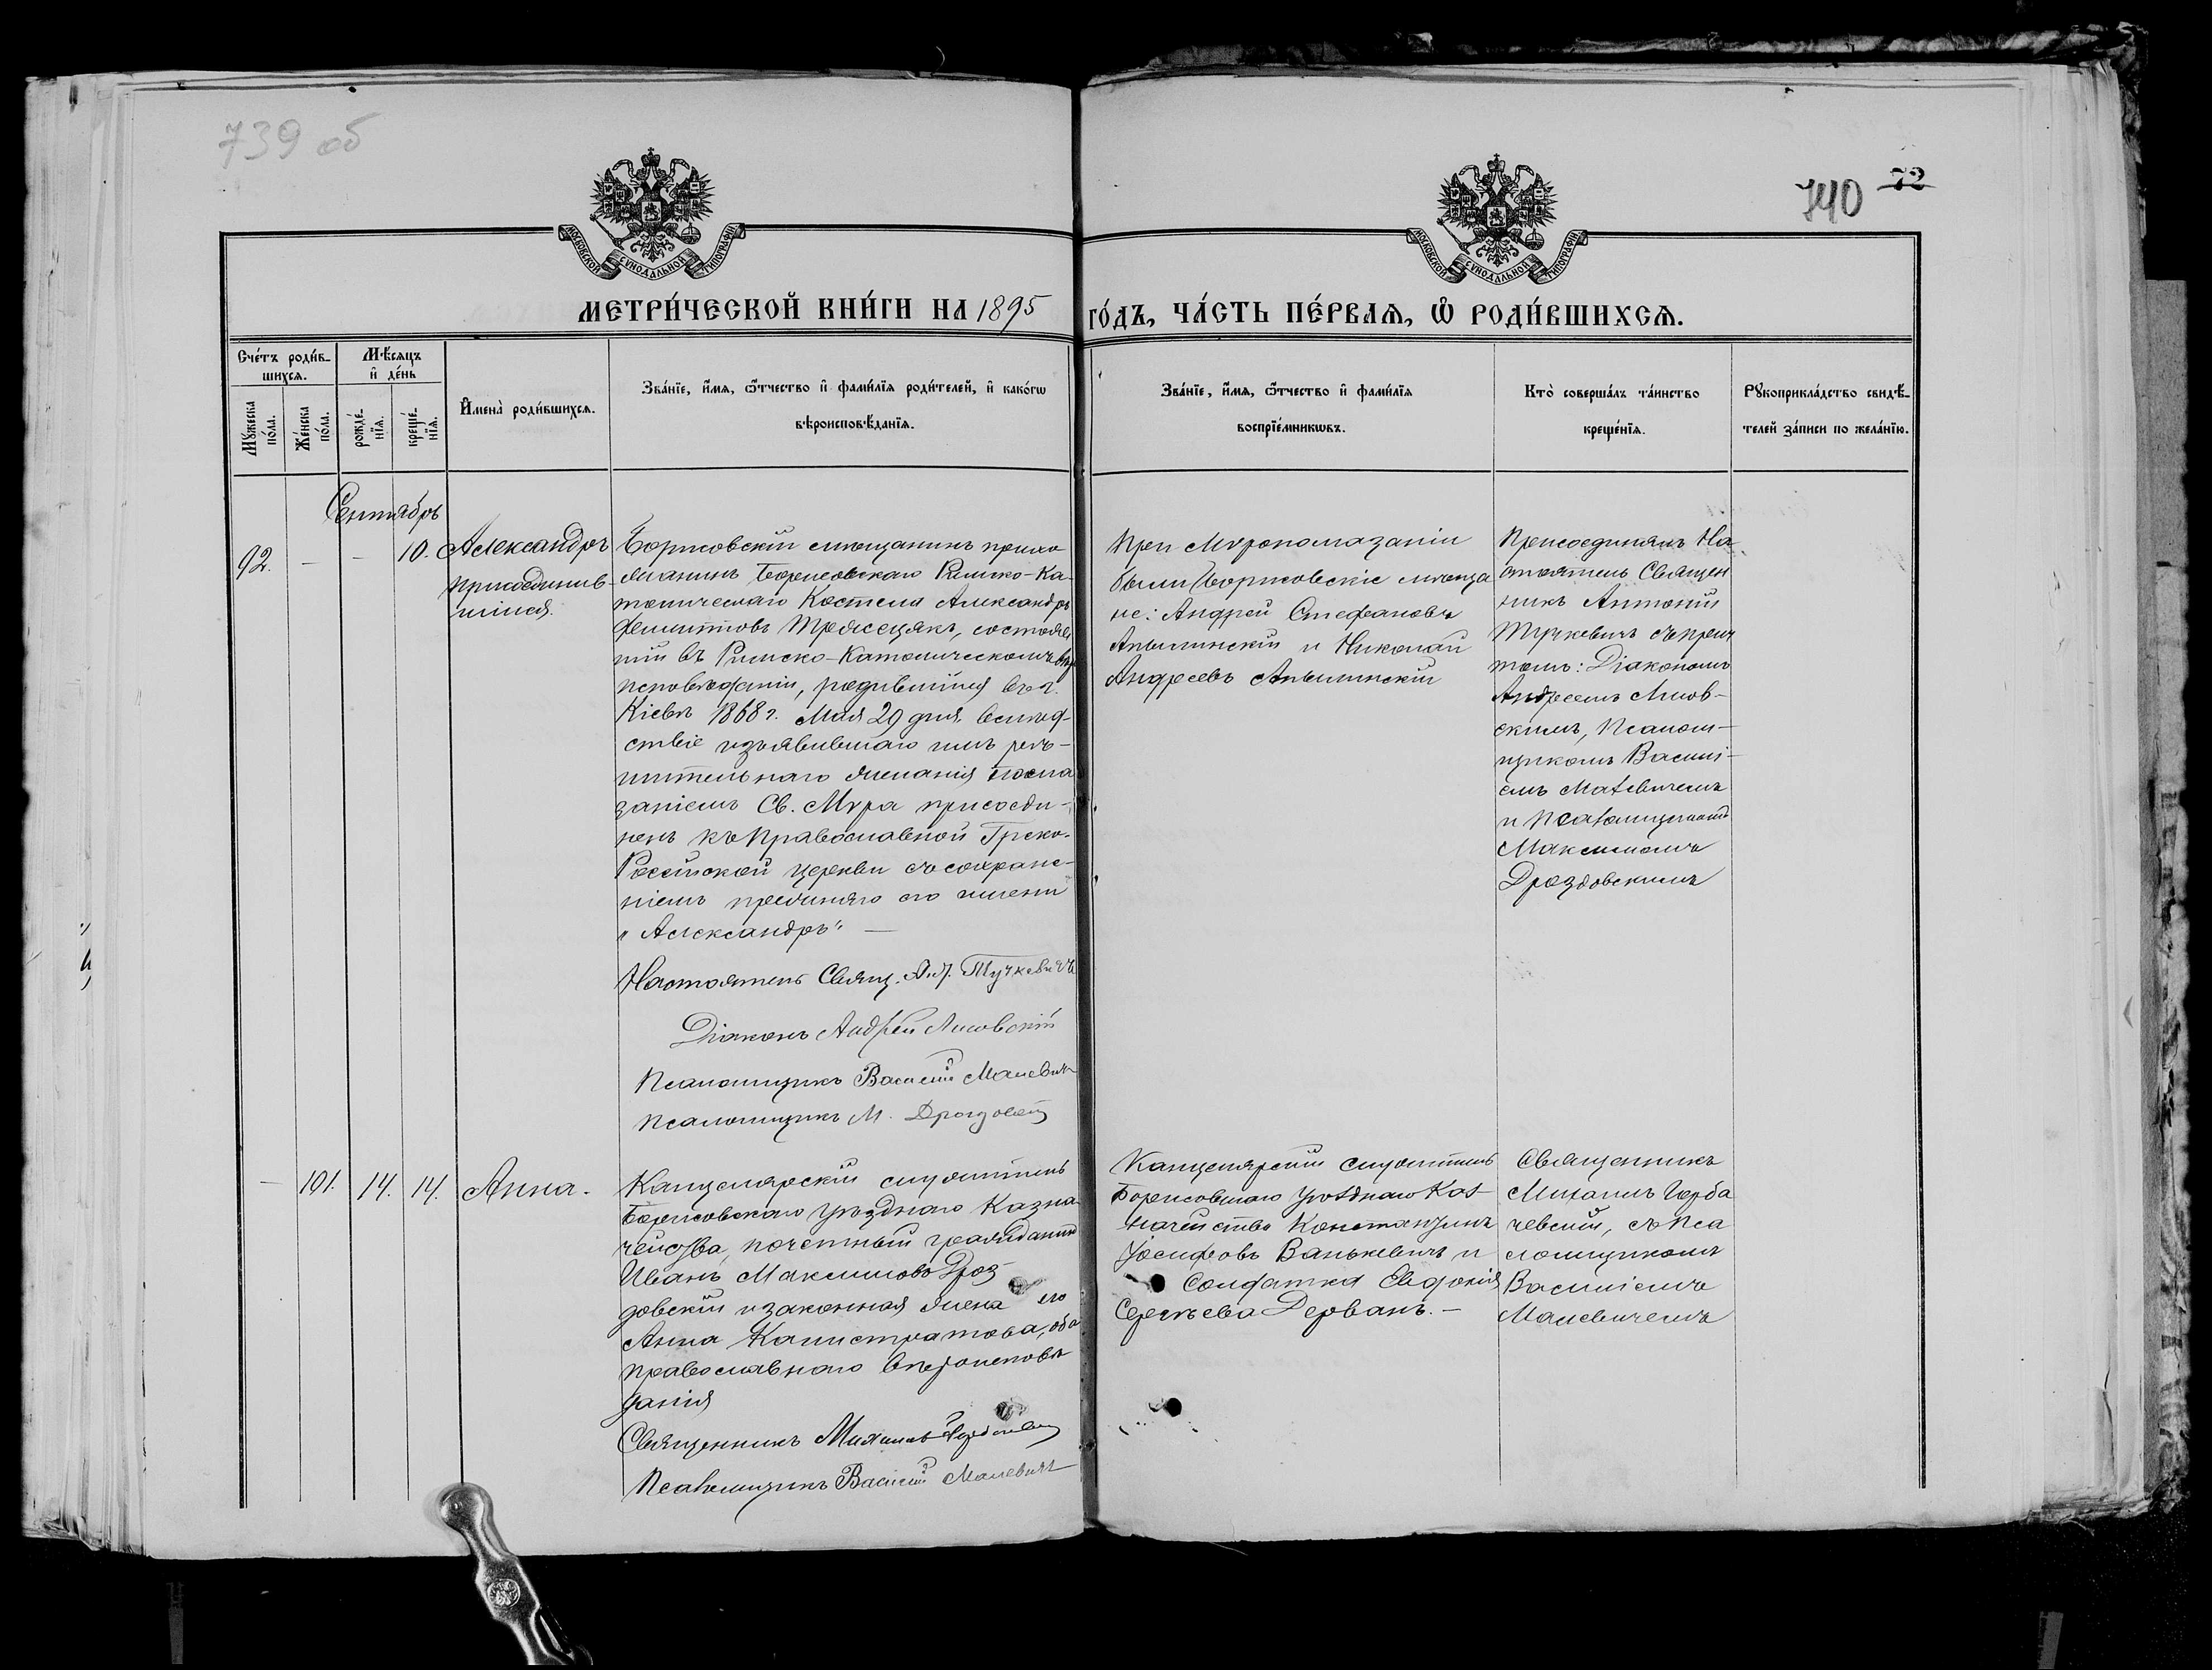 739 об
740 72
МОСКОВСКОЙ СѴНОДАЛЬНОЙ ТИПОГРАФІИ
МОСКОВСКОЙ СѴНОДАЛЬНОЙ ТИПОГРАФІИ
МЕТРИ́ЧЕСКОЙ КНИ́ГИ НА 1895
ГО́ДЪ, ЧА́СТЬ ПЕ́РВАѦ, Ѽ РОДИ́ВШИХСѦ.
Сче́тъ роди́в-
шихсѧ.
Мꙋ́жеска по́ла.
Же́нска по́ла.
Мѣ́сѧцъ
и҆ де́нь
рожде́-
нїѧ.
креще́-
нїѧ.
И҆мена̀ роди́вшихсѧ.
Зва́нїе, и҆́мѧ, ѻ҆́тчество и҆ фами́лїѧ роди́телей, и҆ како́гѡ
вѣроисповѣ́данїѧ.
Зва́нїе, и҆́мѧ, ѻ҆́тчество и҆ фами́лїѧ
воспрїе́мникѡвъ.
Кто̀ соверша́лъ та́инство
креще́нїѧ.
Рꙋкоприкла́дство свидѣ́-
телей за́писи по жела́нїю.
Сентябрь
92. - - 10.
Александръ
присоединив-
шійся
Борисовскій мѣщанинъ прихо
жанинъ Борисовскаго Римско-Ка-
толическаго Костела Александръ
Третецякъ, состояв
шій въ Римско-Католическомъ
исповѣданіи, родившійся въ г.
Кіевѣ 1868 г. Мая 29 дня, вслѣд-
ствіе изъявившаго имъ рѣ-
шительнаго желанія Пома
заніемъ Св. Мѵра присоеди-
ненъ къ Православной Греко-
Россійской церкви съ сохране-
ніемъ прежняго его имени
"Александръ" —
Настоятель Свящ. Ант. Тучкевичъ
Діаконъ Андрей Лисовскій
Псаломщикъ Василій Малевичъ
Псаломщикъ М. Дроздовскій
При Мѵропомазаніи
были Борисовскіе мѣща
не: Андрей Стефановъ
и Николай
Андреевъ
Присоединялъ На
стоятель Священ
никъ Антоній
Тучкевичъ съ прич
томъ: Діакономъ
Андреемъ Лисов-
скимъ, Псалом-
щикомъ Василі-
емъ Малевичемъ
и Псаломщикомъ
Максимомъ
Дроздовскимъ
- 101. 14. 14. Анна.
Канцелярскій служитель
Борисовскаго Уѣзднаго Казна
чейства, почетный гражданинъ
Иванъ Максимовъ Дроз-
довскій и законная жена его
Анна Калистратова, оба
православнаго вѣроисповѣ
данія
Священникъ Михаилъ Горбачевскій
Псаломщикъ Василій Малевичъ
Канцелярскій служитель
Борисовскаго Уѣзднаго Каз-
начейства Константинъ
Іосифовъ Ванькевичъ и
Солдатка Евдокія
Сергѣева Дервань. —
Священникъ
Михаилъ Горба
чевскій, съ Пса
ломщикомъ
Василіемъ
Малевичемъ